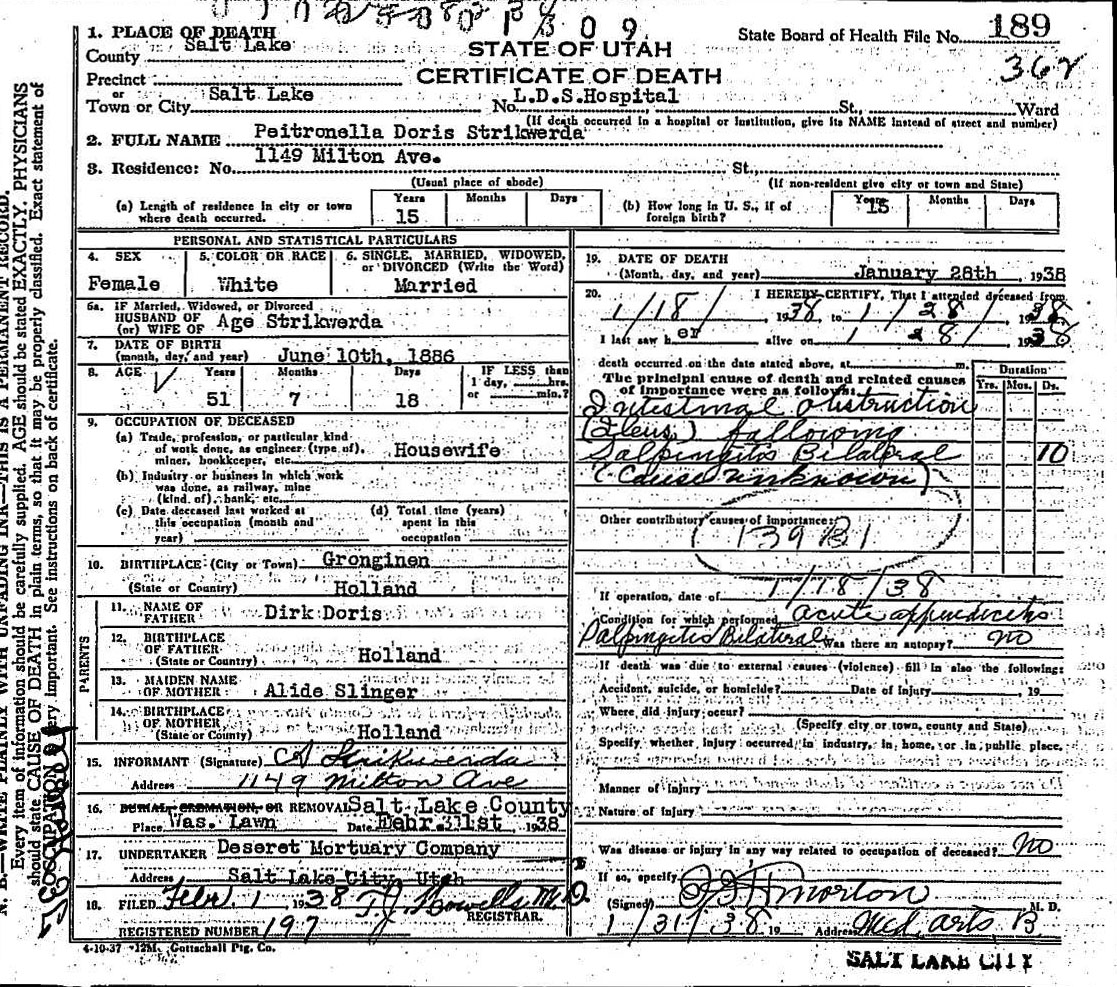 1309
1. PLACE OF DEATH
County Salt Lake
STATE OF UTAH
State Board of Health File No. 189
362
Precinct
CERTIFICATE OF DEATH
or
Town or City Salt Lake No. L.D.S.Hospital St., Ward
(If death occurred in a hospital or institution, give its NAME instead of street and number)
2. FULL NAME Peitronella Doris Strikwerda
3. Residence: No. 1149 Milton Ave. St.,
(Usual place of abode) (If non-resident give city or town and State)
(a) Length of residence in city or town where death occurred. Years 15 Months Days
(b) How long in U. S., if of foreign birth? Years 15 Months Days
PERSONAL AND STATISTICAL PARTICULARS
4. SEX 5. COLOR OR RACE 6. SINGLE, MARRIED, WIDOWED, or DIVORCED (Write the Word)
Female White Married
6a. IF Married, Widowed, or Divorced
HUSBAND OF
(or) WIFE OF Age Strikwerda
7. DATE OF BIRTH
(month, day, and year) June 10th, 1886
8. AGE Years Months Days IF LESS than
1 day, hrs.
or min.?
51 7 18
9. OCCUPATION OF DECEASED
(a) Trade, profession, or particular kind
of work done, as engineer (type of),
miner, bookkeeper, etc. Housewife
(b) Industry or business in which work
was done, as railway, mine
(kind of), bank, etc.
(c) Date deceased last worked at
this occupation (month and
year)
(d) Total time (years)
spent in this
occupation
10. BIRTHPLACE (City or Town) Gronginen
(State or Country) Holland
PARENTS
11. NAME OF
FATHER Dirk Doris
12. BIRTHPLACE
OF FATHER
(State or Country) Holland
13. MAIDEN NAME
OF MOTHER Alide Slinger
14. BIRTHPLACE
OF MOTHER
(State or Country) Holland
15. INFORMANT (Signature) Strikwerda
Address 1149 Milton Ave
16. BURIAL, CREMATION, OR REMOVAL Salt Lake County
Place Was. Lawn Date Febr.31st 1938
17. UNDERTAKER Deseret Mortuary Company
Address Salt Lake City, Utah
18. FILED Febr. 1, 1938 T.J. Howells M.D.
REGISTRAR.
REGISTERED NUMBER 197
4-10-37 12M. Gottschall Ptg. Co.
19. DATE OF DEATH
(Month, day, and year) January 28th, 1938
20. I HEREBY CERTIFY, That I attended deceased from
1/18, 1938, to 1/28, 1938
I last saw her alive on 1 28/, 1938
death occurred on the date stated above, at m.
The principal cause of death and related causes
of importance were as follows:
Duration
Yrs. Mos. Ds.
Intestinal Obstruction
(Ileus) following
Salpingitis Bilateral 10
(Cause unknown)
Other contributory causes of importance:
139 B1
If operation, date of 1/18/38
Condition for which performed Acute appendicitis
Salpingitis Bilateral Was there an autopsy? no
If death was due to external causes (violence) fill in also the following:
Accident, suicide, or homicide? Date of injury , 19
Where did injury occur?
(Specify city or town, county and State)
Specify whether injury occurred in industry, in home, or in public place.
Manner of injury
Nature of injury
Was disease or injury in any way related to occupation of deceased? No
If so, specify
(Signed) Morton M. D.
1/31/38 19 Address Med. Arts B.
SALT LAKE CITY
N. B.—WRITE PLAINLY WITH UNFADING INK—THIS IS A PERMANENT RECORD.
Every item of information should be carefully supplied. AGE should be stated EXACTLY. PHYSICIANS
should state CAUSE OF DEATH in plain terms, so that it may be properly classified. Exact statement of
OCCUPATION is very important. See instructions on back of certificate.